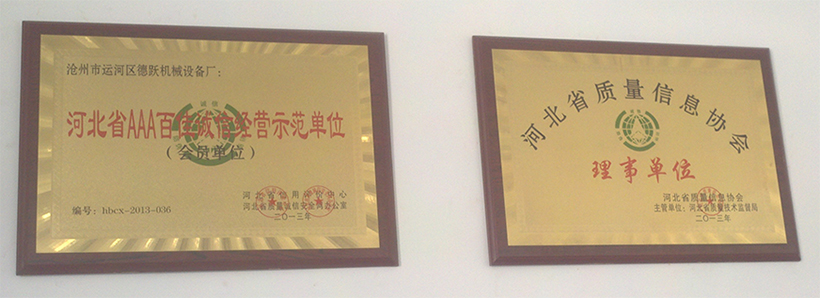 沧州市运河区德跃机械设备厂:
河北省AAA百佳诚信经营示范单位
(会员单位)
编号: hbcx-2013-036
河北省信用评价中心
河北省质量诚信企业网办公室
二〇一三年
河北省质量信息协会
理事单位
河北省质量信息协会
主管单位: 河北省质量技术监督局
二〇一三年